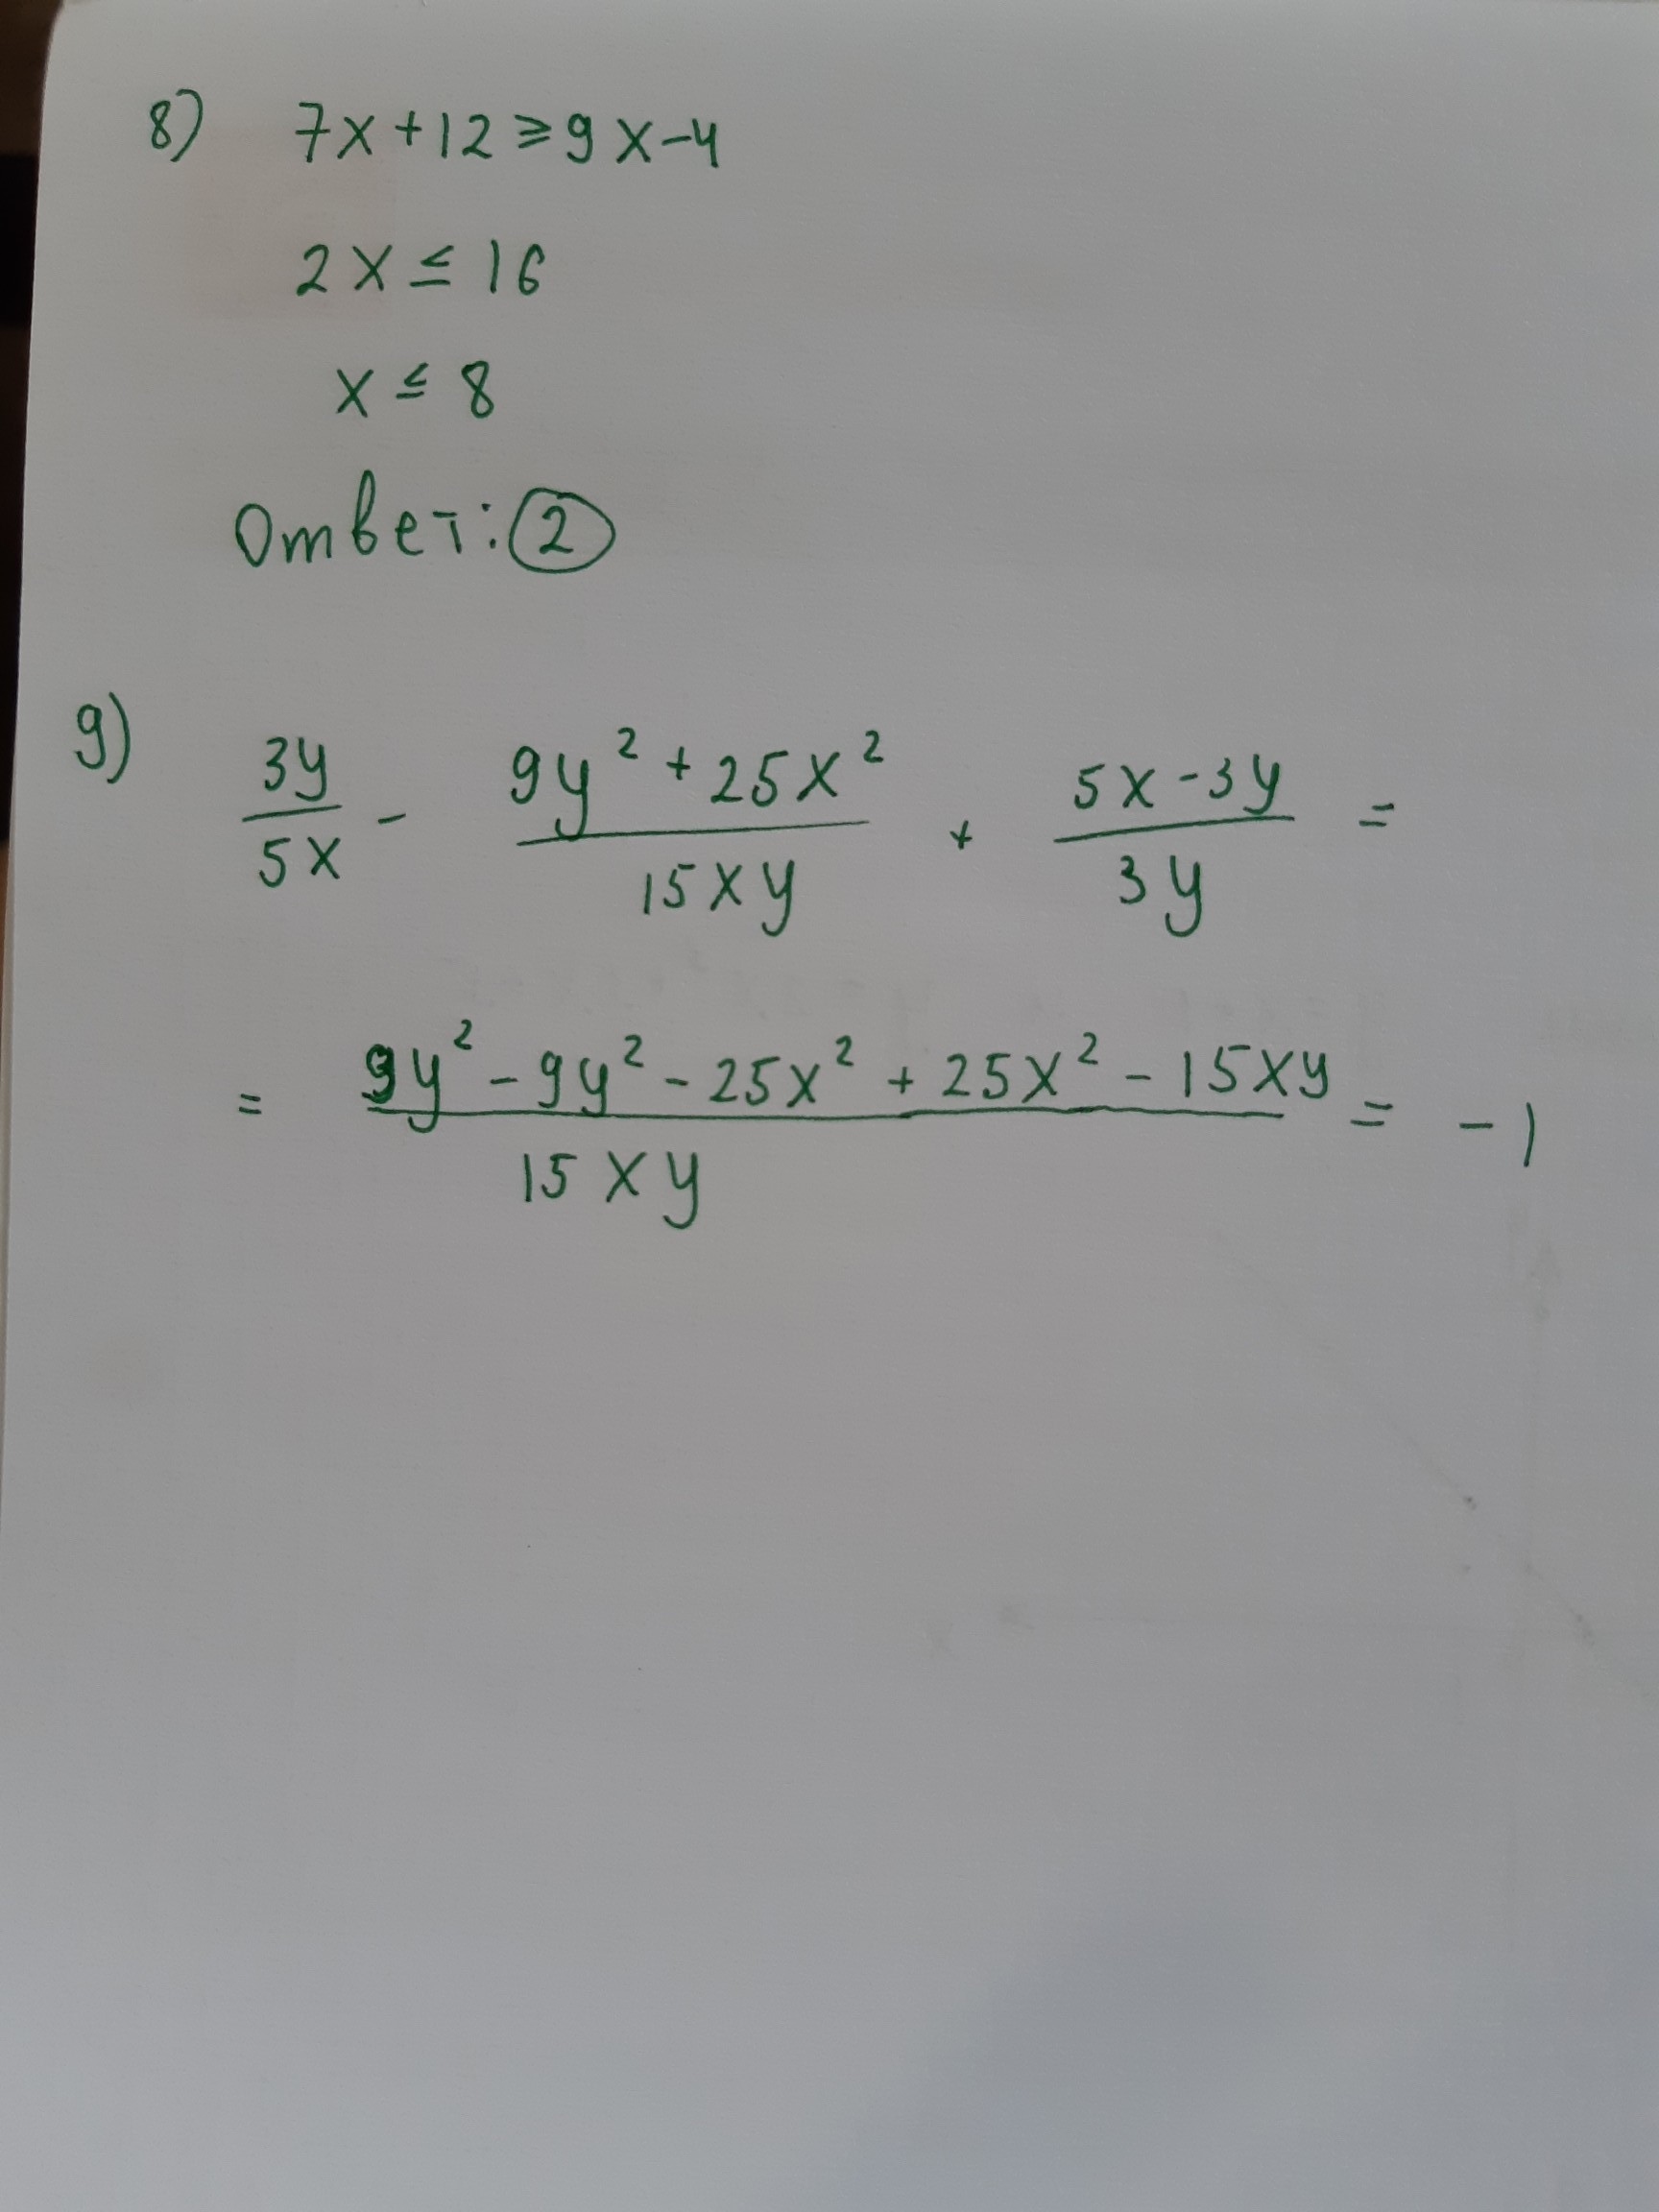 8) 7x+12≥9x-4
2x≤16
x≤8
Ответ: 2
9) 3y/5x - 9y²+25x²/15xy + 5x-3y/3y =
= 9y²-9y²-25x²+25x²-15xy/15xy = -1